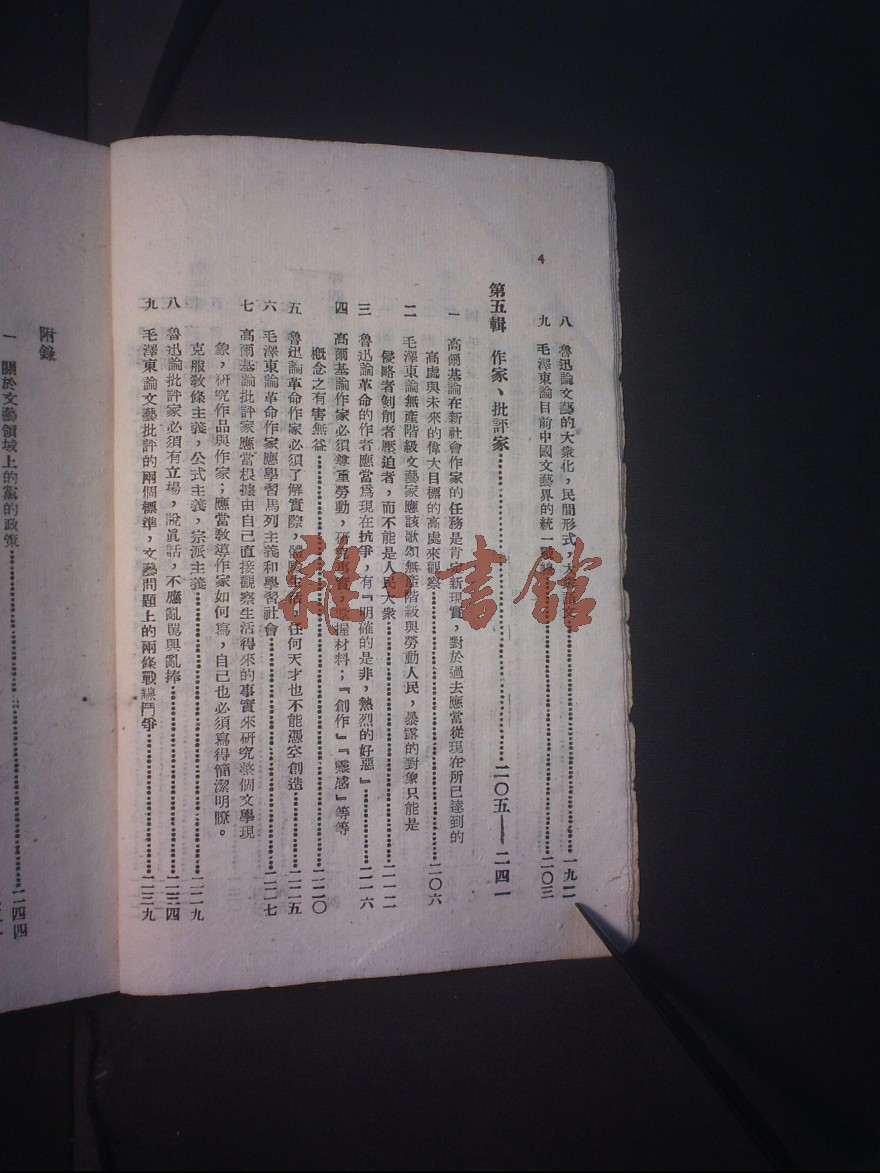 4
八 魯迅論文藝的大衆化，民間形式，大衆語文……一九二
九 毛澤東論目前中國文藝界的統一戰線……二〇三
第五輯 作家、批評家……二〇五——二四一
一 高爾基論在新社會作家的任務是肯定新現實，對於過去應當從現在所已達到的
高處與未來的偉大目標的高處來觀察……二〇六
二 毛澤東論無產階級文藝家應該歌頌無產階級與勞動人民，暴露的對象只能是
侵略者剝削者壓迫者，而不能是人民大衆……二一二
三 魯迅論革命的作者應當爲現在抗爭，有『明確的是非，熱烈的好惡』……二一六
四 高爾基論作家必須尊重勞動，研究事實，掌握材料；『創作』『靈感』等等
概念之有害無益……二二〇
五 魯迅論革命作家必須了解實際，體驗生活，任何天才也不能憑空創造……二二五
六 毛澤東論革命作家應學習馬列主義和學習社會……二二七
七 高爾基論批評家應當根據由自己直接觀察生活得來的事實來研究整個文學現
象，研究作品與作家；應當教導作家如何寫，自己也必須寫得簡潔明瞭。
克服教條主義，公式主義，宗派主義……二二九
八 魯迅論批評家必須有立場，說眞話，不應亂罵與亂捧……二三四
九 毛澤東論文藝批評的兩個標準，文藝問題上的兩條戰線鬥爭……二三九
附錄
一 關於文藝領域上的黨的政策……二四四
雜·書館